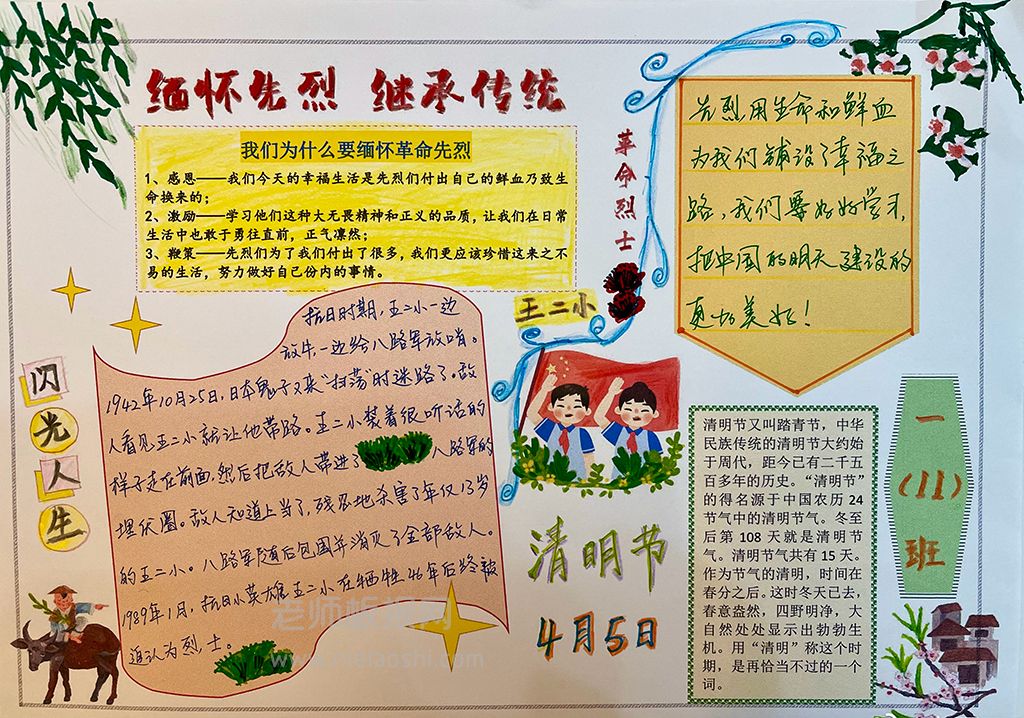 缅怀先烈 继承传统
我们为什么要缅怀革命先烈
1、感恩——我们今天的幸福生活是先烈们付出自己的鲜血乃致生
命换来的；
2、激励——学习他们这种大无畏精神和正义的品质，让我们在日常
生活中也敢于勇往直前，正气凛然；
3、鞭策——先烈们为了我们付出了很多，我们更应该珍惜这来之不
易的生活，努力做好自己份内的事情。
革命烈士
王二小
先烈用生命和鲜血
为我们铺设了幸福之
路，我们要好好学习，
把中国的明天建设的
更加美好！
闪光人生
抗日时期，王二小一边
放牛一边给八路军放哨。
1942年10月25日，日本鬼子又来“扫荡”时迷路了。敌
人看见王二小就让他带路。王二小装着很听话的
样子走在前面，然后把敌人带进了八路军的
埋伏圈。敌人知道上当了，残忍地杀害了年仅13岁
的王二小。八路军随后包围并消灭了全部敌人。
1989年1月，抗日小英雄王二小在牺牲46年后终被
追认为烈士。
清明节
4月5日
清明节又叫踏青节，中华
民族传统的清明节大约始
于周代，距今已有二千五
百多年的历史。“清明节”
的得名源于中国农历 24
节气中的清明节气。冬至
后第 108 天就是清明节
气。清明节气共有 15 天。
作为节气的清明，时间在
春分之后。这时冬天已去，
春意盎然，四野明净，大
自然处处显示出勃勃生
机。用“清明”称这个时
期，是再恰当不过的一个
词。
一
(11)
班